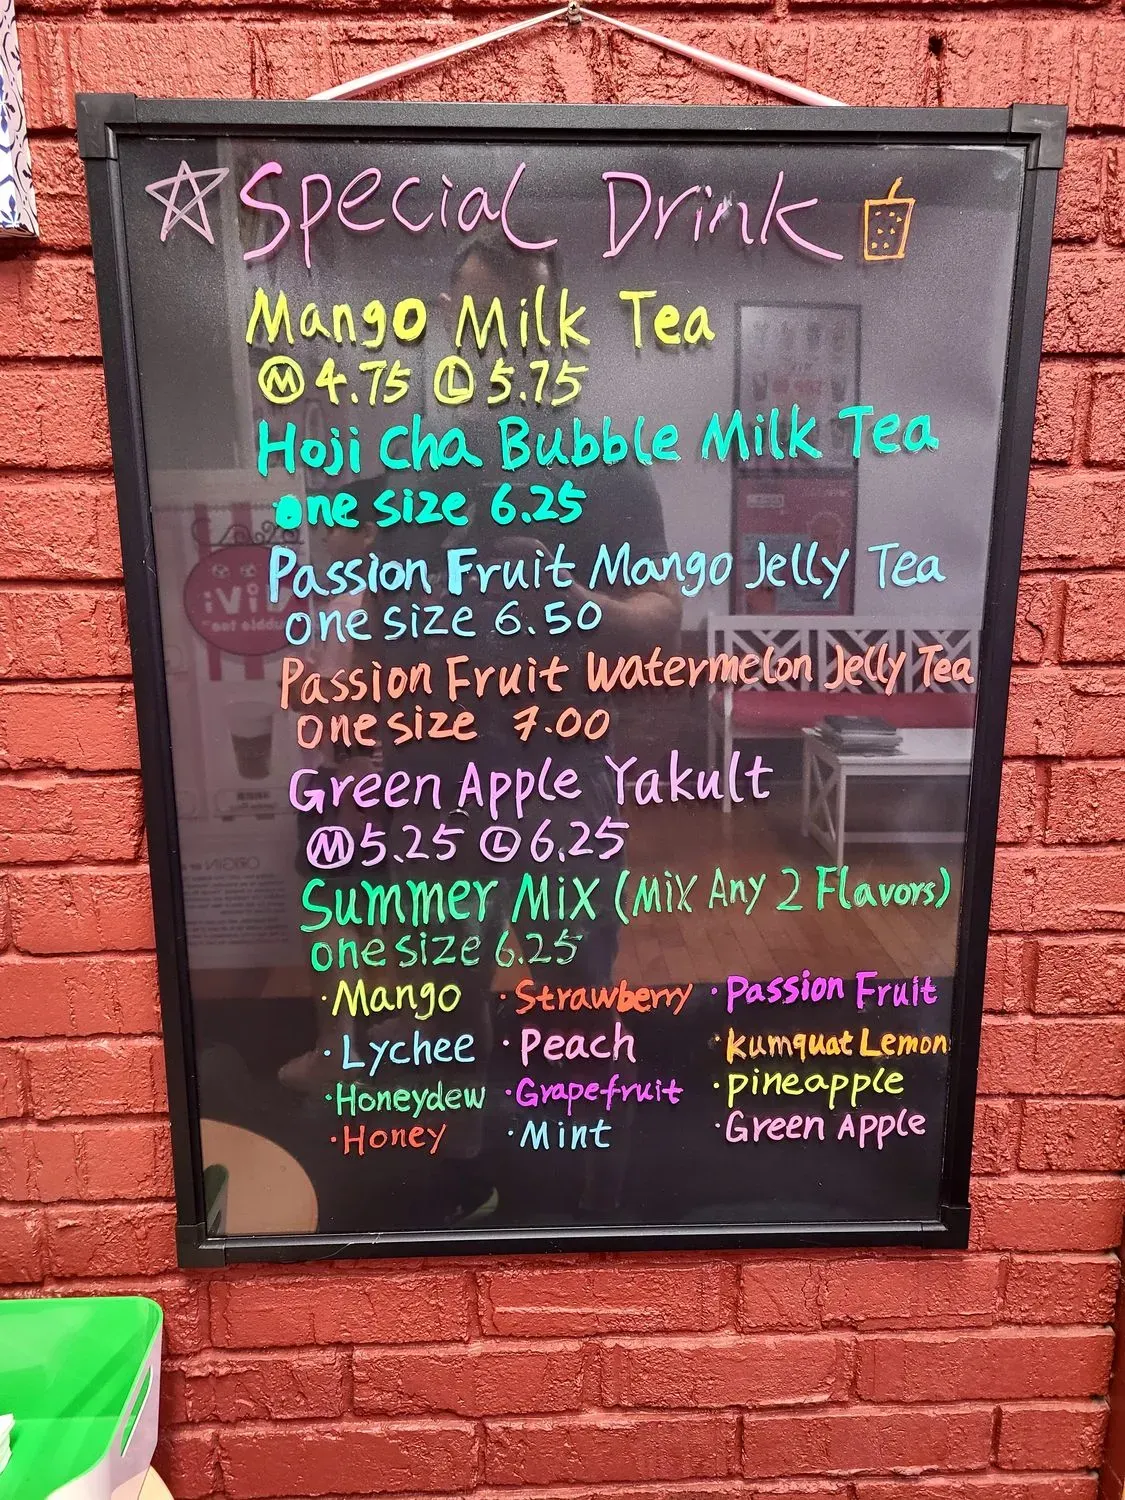 Special Drink
Mango Milk Tea
M 4.75 L 5.75
Hoji Cha Bubble Milk Tea
one size 6.25
Passion Fruit Mango Jelly Tea
one size 6.50
Passion Fruit Watermelon Jelly Tea
one size 7.00
Green Apple Yakult
M 5.25 L 6.25
Summer Mix (Mix Any 2 Flavors)
one size 6.25
· Mango · Strawberry · Passion Fruit
· Lychee · Peach · Kumquat Lemon
· Honeydew · Grapefruit · pineapple
· Honey · Mint · Green Apple
ViVi
bubble tea
ORIGIN